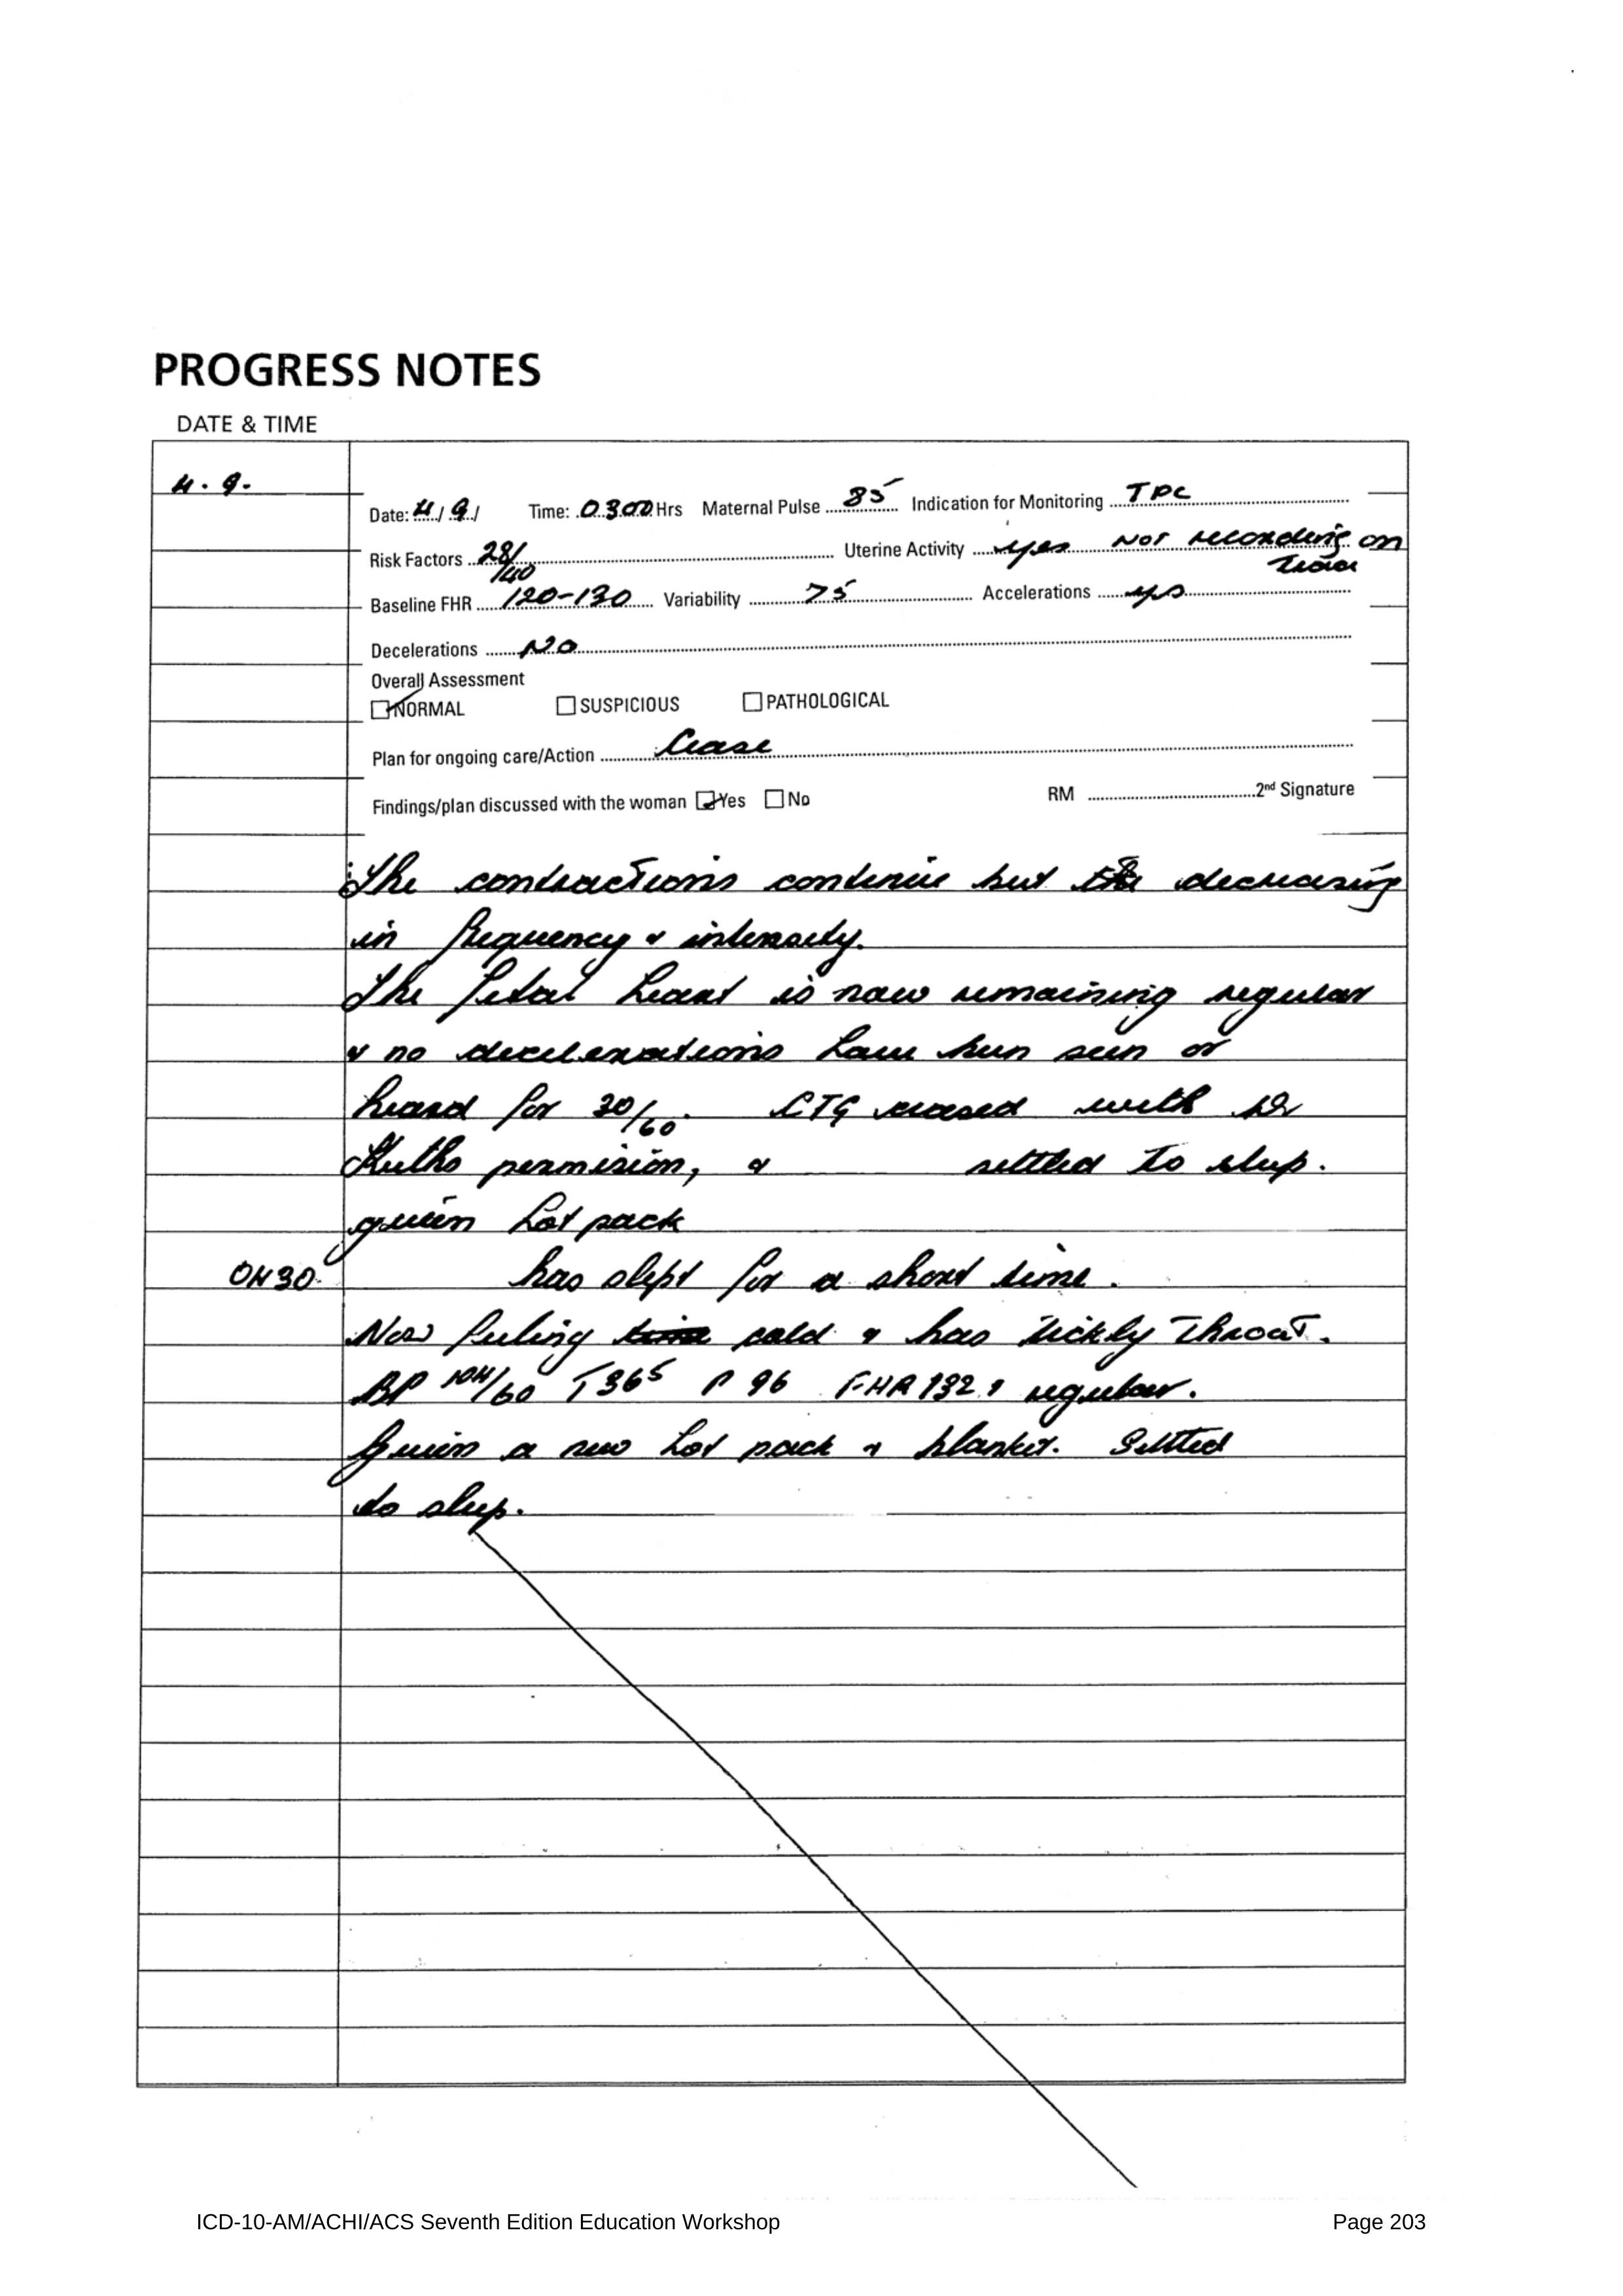 PROGRESS NOTES
DATE & TIME
4.9.
Date: 4/9/ Time: 0300 Hrs Maternal Pulse 85 Indication for Monitoring TPC
Risk Factors 28/40 Uterine Activity yes Not recording on
Baseline FHR 120-130 Variability >5 Accelerations yes
Decelerations NO
Overall Assessment
NORMAL SUSPICIOUS PATHOLOGICAL
Plan for ongoing care/Action Cease
Findings/plan discussed with the woman Yes No RM 2nd Signature
The contractions continue but decreasing
in frequency & intensity.
The fetal heart is now remaining regular
& no decelerations have been seen or
heard for 30/60. CTG ceased with
permision, & settled to sleep.
given hot pack
0430 has slept for a short time.
Now feeling cold & has tickly throat.
BP 104/60 T365 P 96 FHR 132, regular.
Given a new hot pack & blanket. Settled
to sleep.
ICD-10-AM/ACHI/ACS Seventh Edition Education Workshop Page 203